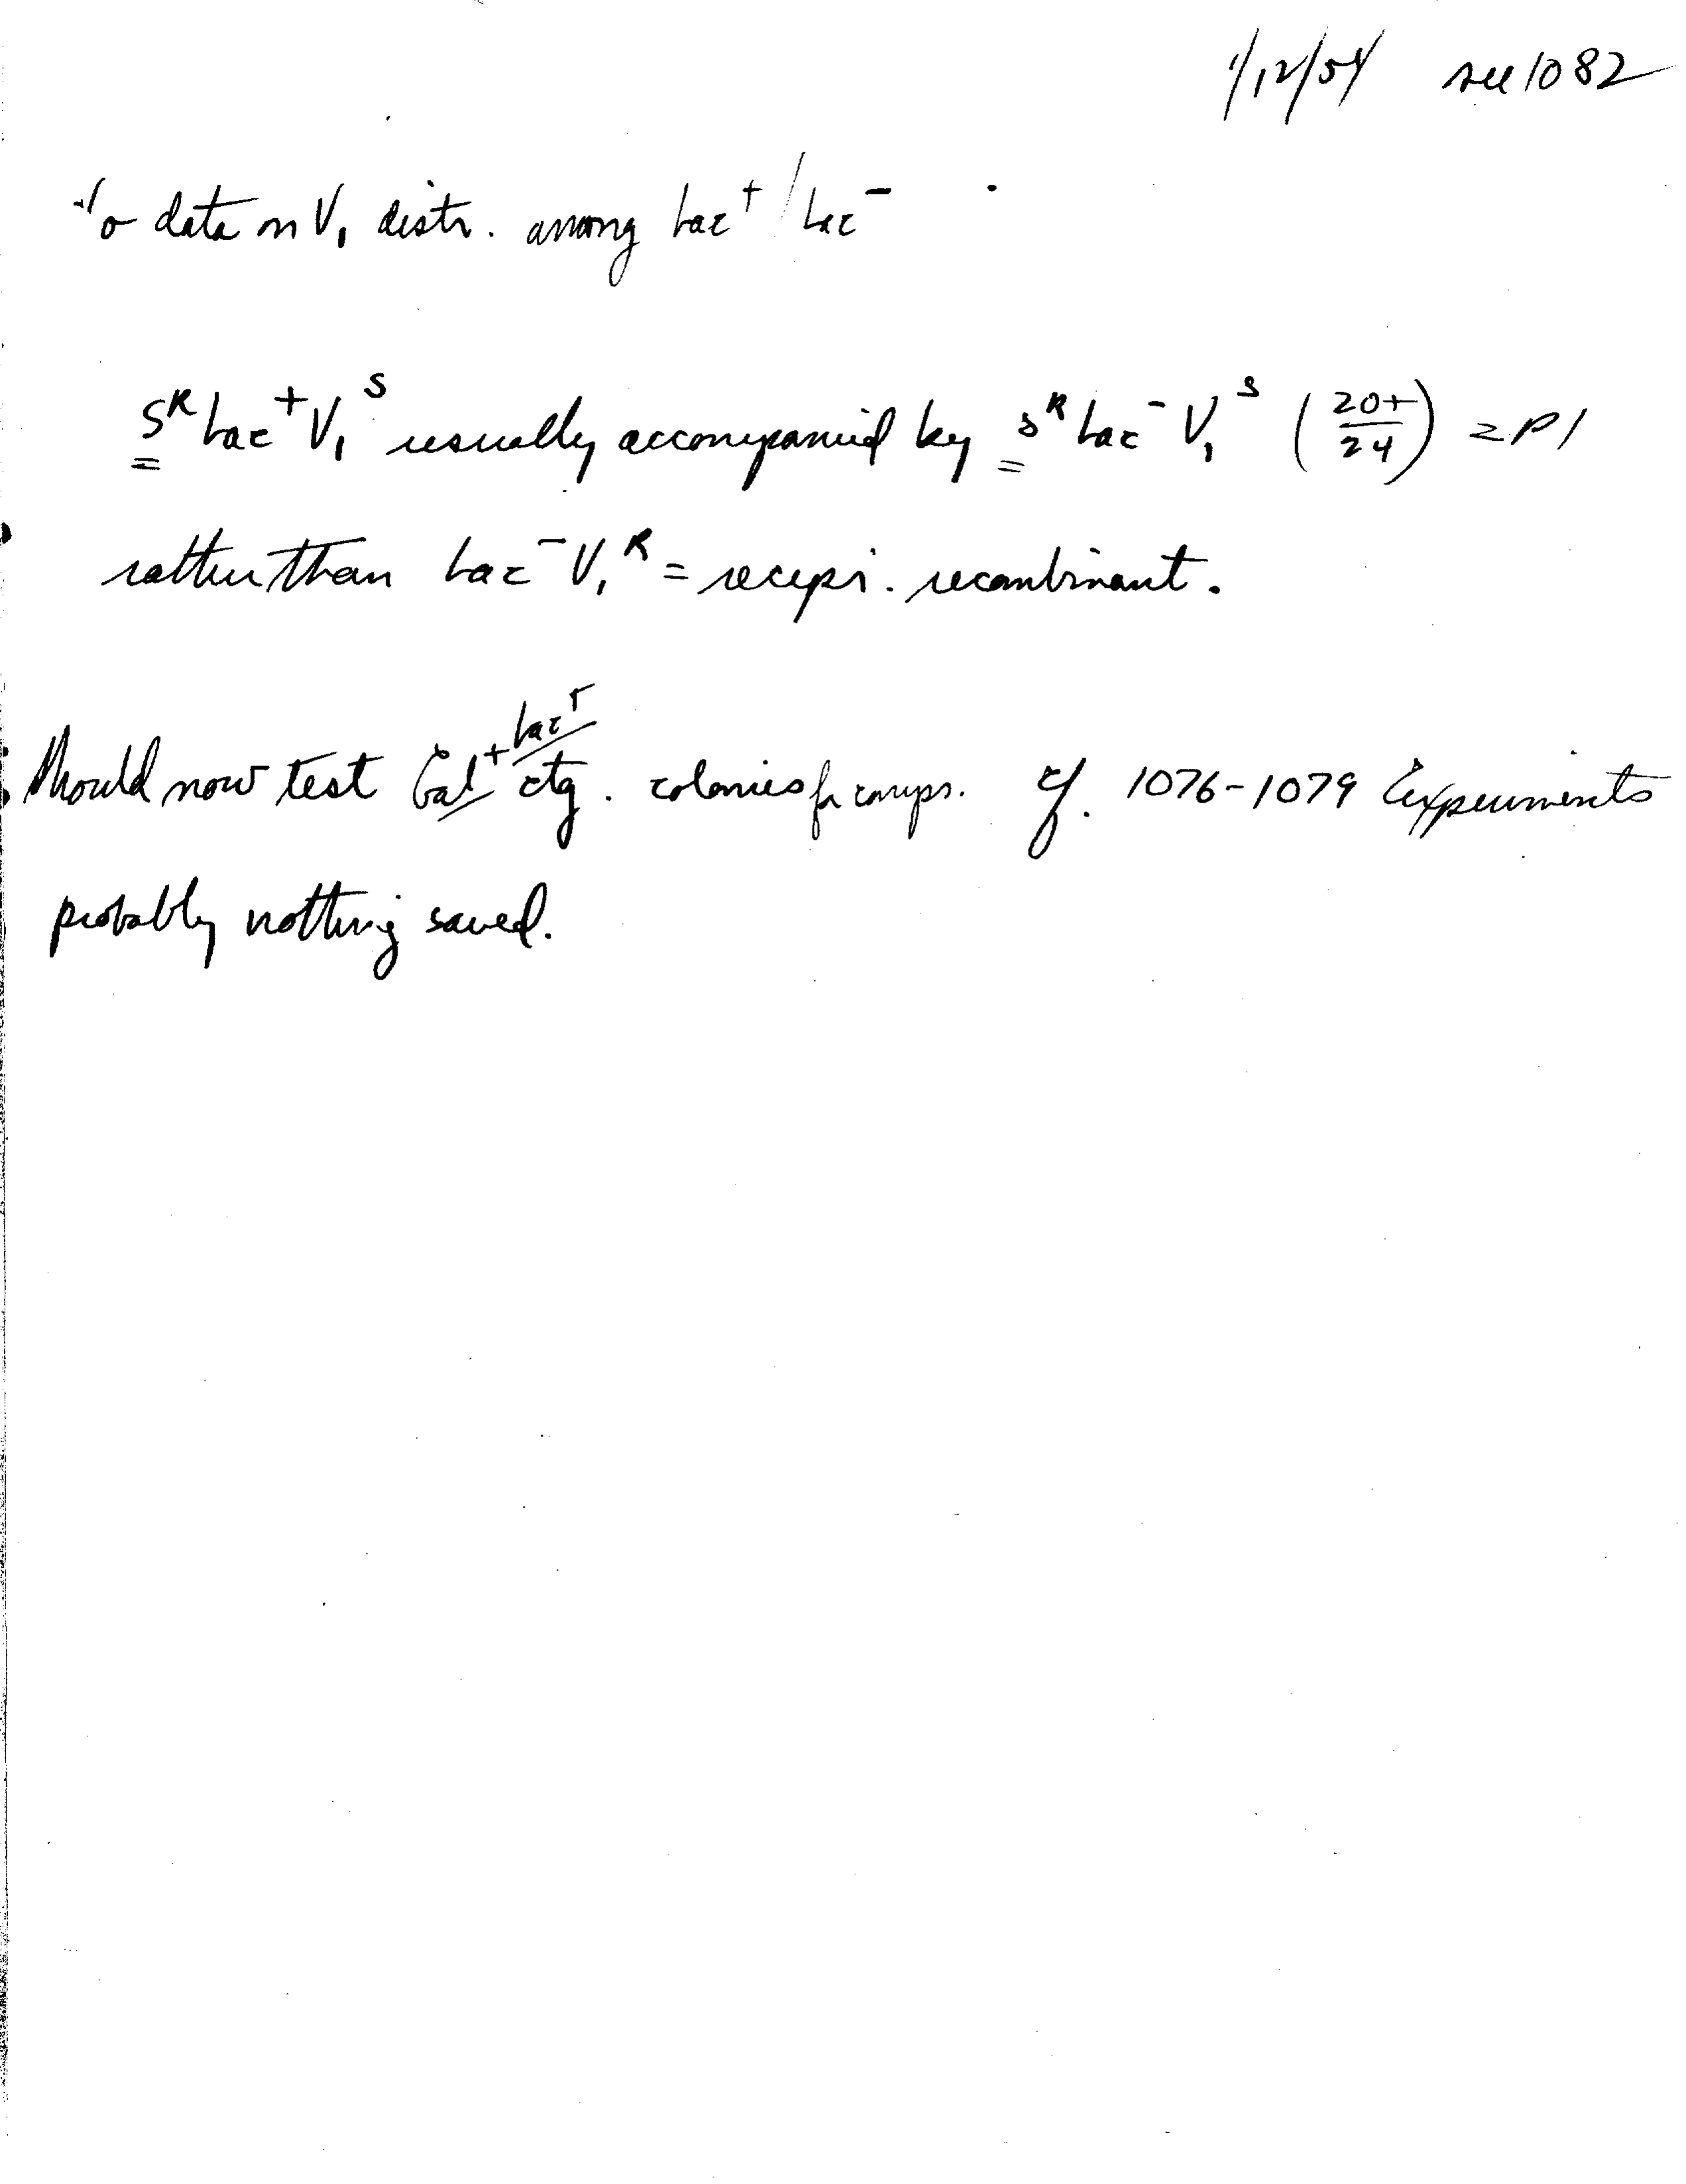 1/12/54 see 1082
No data on V₁ distr. among Lac⁺/Lac⁻
Sᴿ Lac⁺ V₁ˢ usually accompanied by sᴿ Lac⁻ V₁ˢ (20+/24) = P1
rather than Lac⁻ V₁ᴿ = recipr. recombinant.
Should now test Gal⁺ Lac⁺ ctg. colonies for comps. cf. 1076-1079 Experiments
probably nothing saved.